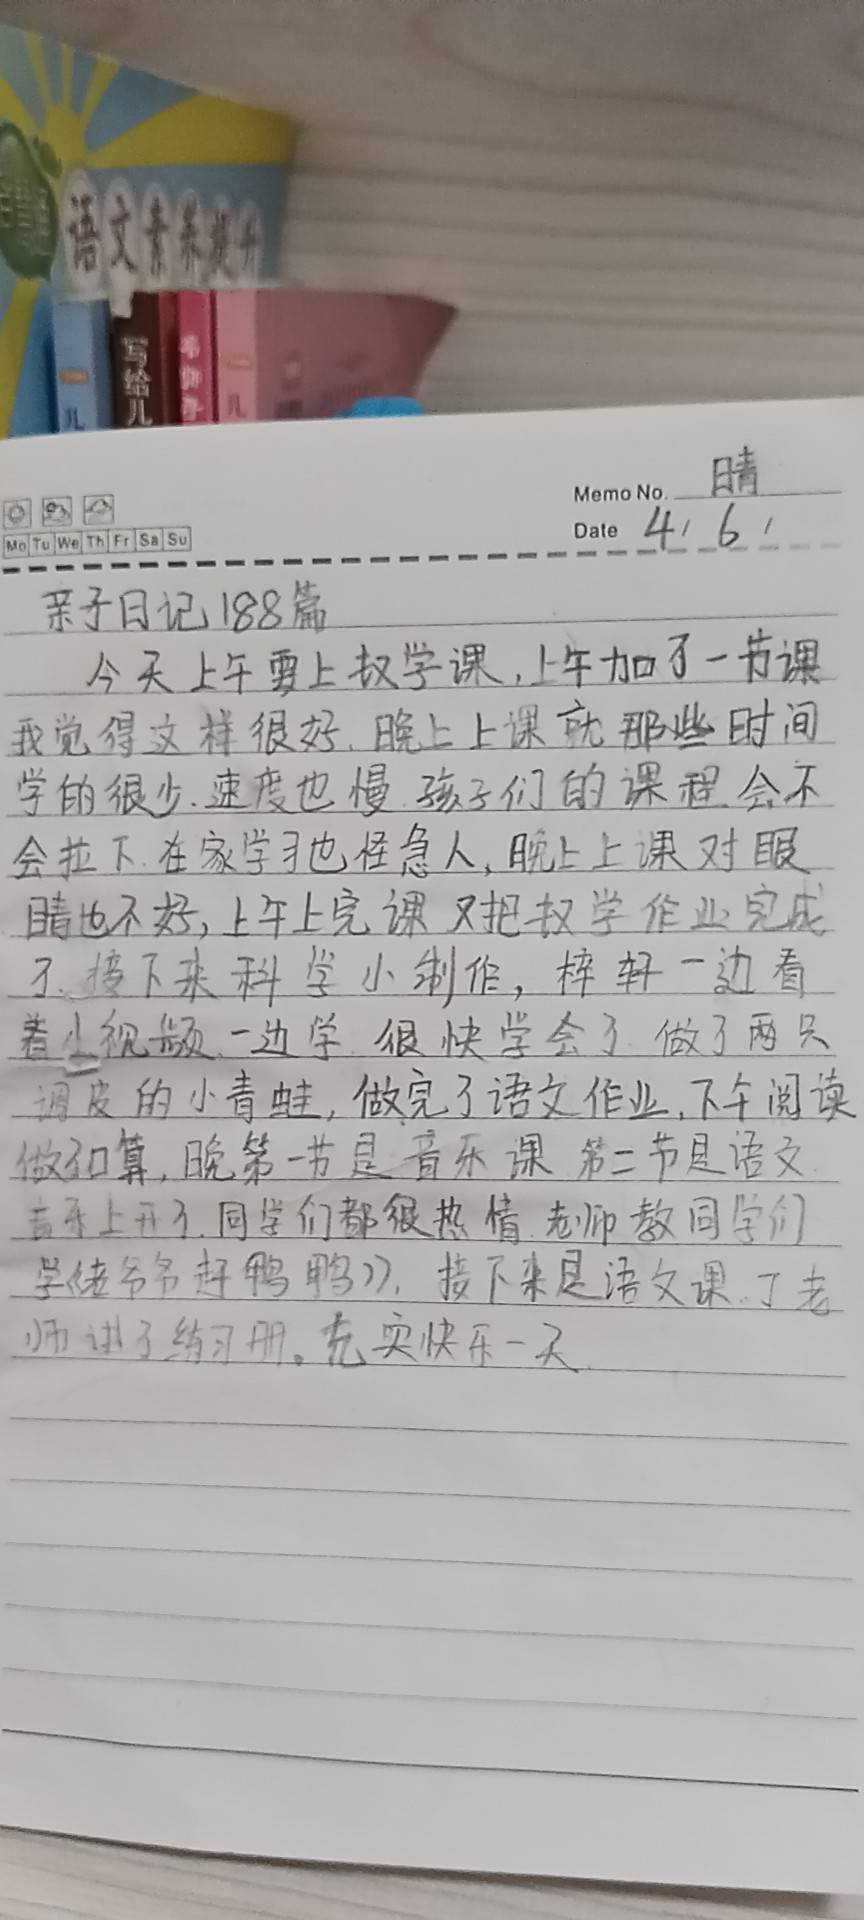 语文素养提升
写给儿
儿
儿
Memo No. 晴
Mo Tu We Th Fr Sa Su
Date 4/6/
亲子日记188篇
今天上午要上数学课,上午加了一节课
我觉得这样很好.晚上上课就那些时间
学的很少.速度也慢.孩子们的课程会不
会拉下.在家学习也怪急人,晚上上课对眼
睛也不好,上午上完课又把数学作业完成
了.接下来科学小制作,梓轩一边看
着小视频.一边学.很快学会了.做了两只
调皮的小青蛙,做完了语文作业.下午阅读
做了口算,晚第一节是音乐课 第二节是语文.
音乐上开了.同学们都很热情.老师教同学们
学《老爷爷赶鹅鸭》.接下来是语文课.丁老
师讲了练习册。充实快乐一天.